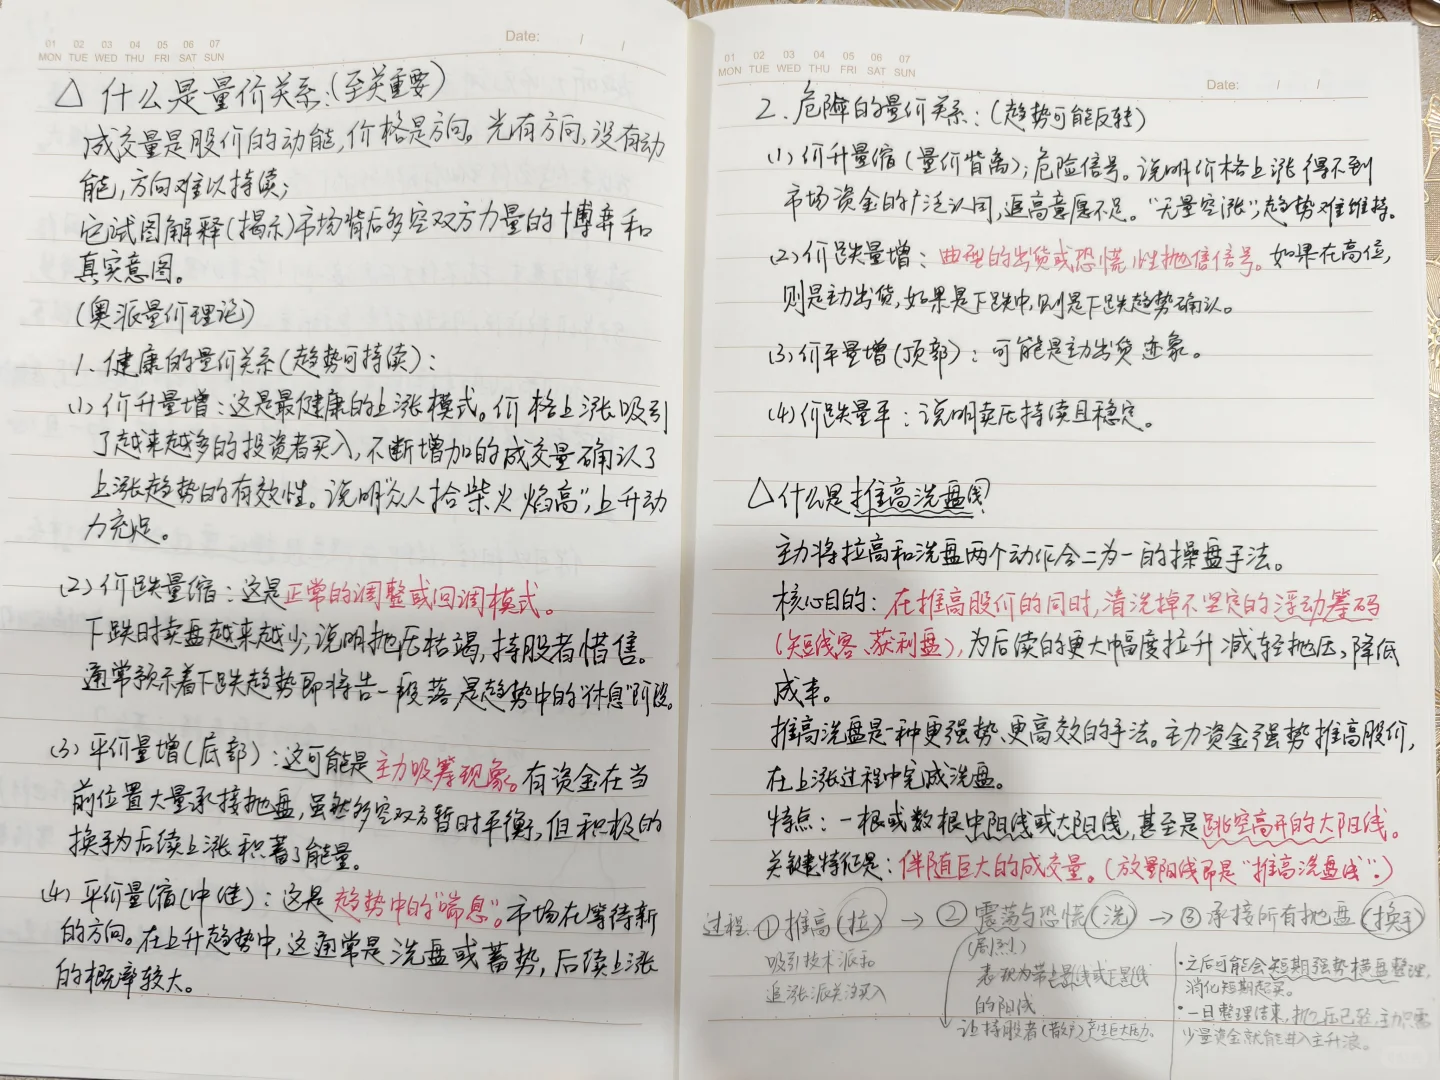 01 02 03 04 05 06 07
MON TUE WED THU FRI SAT SUN
Date: / /
△ 什么是量价关系.(至关重要)
成交量是股价的动能,价格是方向。光有方向,没有动
能,方向难以持续;
它试图解释(揭示)市场背后多空双方力量的博弈和
真实意图。
(奥派量价理论)
1.健康的量价关系(趋势可持续):
(1)价升量增:这是最健康的上涨模式。价格上涨吸引
了越来越多的投资者买入,不断增加的成交量确认了
上涨趋势的有效性。说明"众人拾柴火焰高",上升动
力充足。
(2)价跌量缩:这是正常的调整或回调模式。
下跌时卖盘越来越少,说明抛压枯竭,持股者惜售。
通常预示着下跌趋势即将告一段落,是趋势中的"休息"阶段。
(3)平价量增(底部):这可能是主力吸筹现象。有资金在当
前位置大量承接抛盘,虽然多空双方暂时平衡,但积极的
换手为后续上涨积蓄了能量。
(4)平价量缩(中继):这是趋势中的"喘息"。市场在等待新
的方向。在上升趋势中,这通常是洗盘或蓄势,后续上涨
的概率较大。
01 02 03 04 05 06 07
MON TUE WED THU FRI SAT SUN
Date: / /
2.危险的量价关系:(趋势可能反转)
(1)价升量缩(量价背离);危险信号。说明价格上涨得不到
市场资金的广泛认同,追高意愿不足。"无量空涨",趋势难维持。
(2)价跌量增:典型的出货或恐慌性抛售信号。如果在高位,
则是主力出货,如果是下跌中,则是下跌趋势确认。
(3)价平量增(顶部):可能是主力出货迹象。
(4)价跌量平:说明卖压持续且稳定。
△什么是推高洗盘线?
主力将拉高和洗盘两个动作合二为一的操盘手法。
核心目的:在推高股价的同时,清洗掉不坚定的浮动筹码
(短线客、获利盘),为后续的更大幅度拉升减轻抛压,降低
成本。
推高洗盘是一种更强势、更高效的手法。主力资金强势推高股价,
在上涨过程中完成洗盘。
特点:一根或数根中阳线或大阳线,甚至是跳空高开的大阳线。
关键特征是:伴随巨大的成交量。(放量阳线即是"推高洗盘线".)
过程.①推高(拉) → ②震荡与恐慌(洗) → ③承接所有抛盘(换手)
吸引技术派和
追涨派关注买入
(剧烈)
表现为带上影线或下影线
的阳线
让持股者(散户)产生巨大压力.
·之后可能会短期强势横盘整理,
消化短期超买。
·一旦整理结束,抛压已轻,主力只需
少量资金就能进入主升浪。